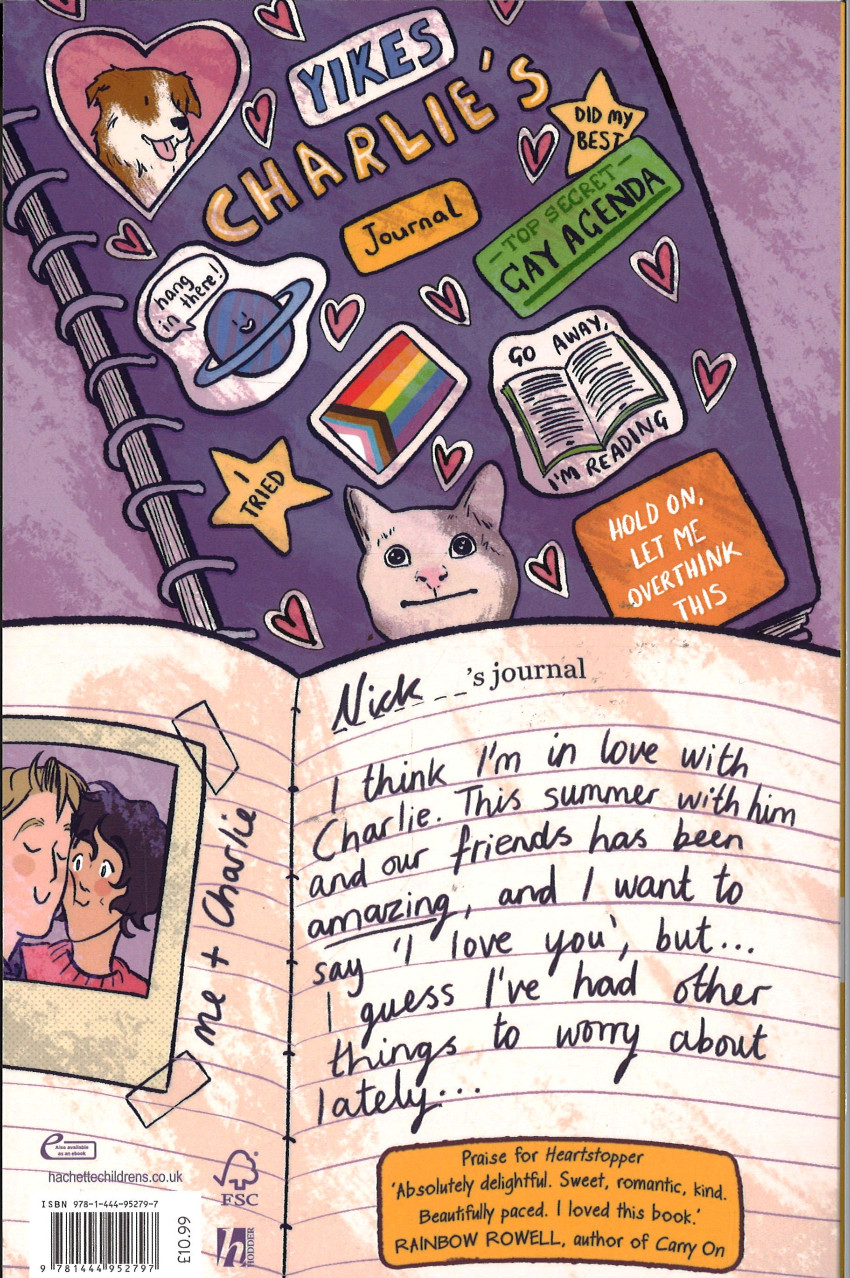 YIKES
CHARLIE'S
Journal
DID MY
BEST
- TOP SECRET -
GAY AGENDA
hang
in there!
GO AWAY,
I'M READING
I
TRIED
HOLD ON,
LET ME
OVERTHINK
THIS
Nick 's journal
I think I'm in love with
Charlie. This summer with him
and our friends has been
amazing, and I want to
say 'I love you', but...
I guess I've had other
things to worry about
lately...
me + Charlie
e
Also available
as an ebook
hachettechildrens.co.uk
FSC
ISBN 978-1-444-95279-7
9 781444 952797
£10.99
h
HODDER
Praise for Heartstopper
'Absolutely delightful. Sweet, romantic, kind.
Beautifully paced. I loved this book.'
RAINBOW ROWELL, author of Carry On